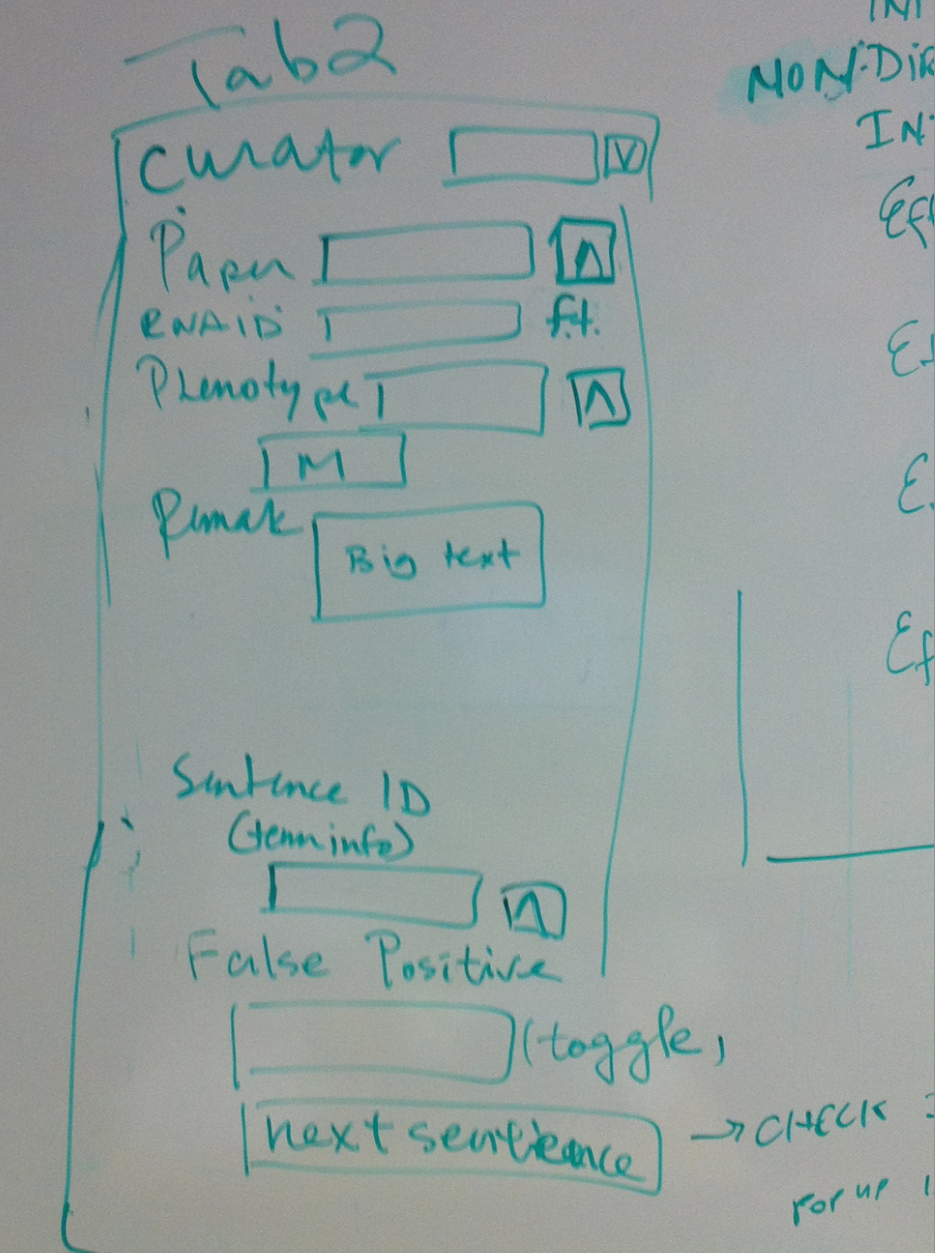 Tab2
Curator V
Paper Λ
RNAiD f.t.
Phenotype Λ
M
Remak
Big text
Sentence ID
(term info)
Λ
False Positive
(toggle,
next sentence
→ CHECK :
POP UP
NON-DIR
IN
Eff
E
E
Ef